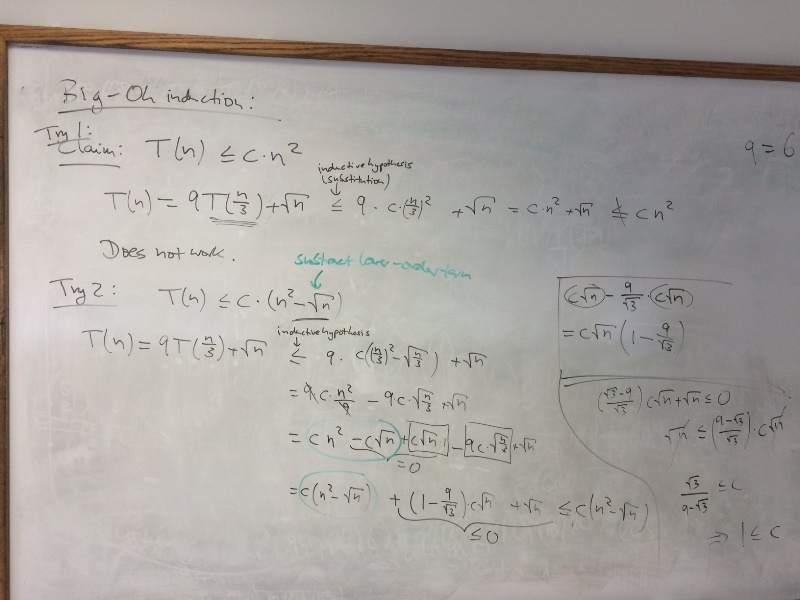 Big-Oh induction:
Try 1:
Claim: T(n) ≤ c·n²
q = 6
inductive hypothesis
(substitution)
↓
T(n) = 9T(n/3) + √n ≤ 9·c·(n/3)² + √n = c·n² + √n ≰ cn²
Does not work.
subtract lower-order term
Try 2: T(n) ≤ c·(n² - √n)
inductive hypothesis
↓
T(n) = 9T(n/3) + √n ≤ 9·c((n/3)² - √(n/3)) + √n
= 9c·n²/9 - 9c·√(n/3) + √n
= cn² - c√n + c√n - 9c·√(n/3) + √n
= 0
= c(n² - √n) + (1 - 9/√3)c√n + √n ≤ c(n² - √n)
≤ 0
c√n - 9/√3·c√n
= c√n(1 - 9/√3)
((√3-9)/√3) c√n + √n ≤ 0
√n ≤ ((9-√3)/√3)·c√n
√3/(9-√3) ≤ c
⇒ 1 ≤ c